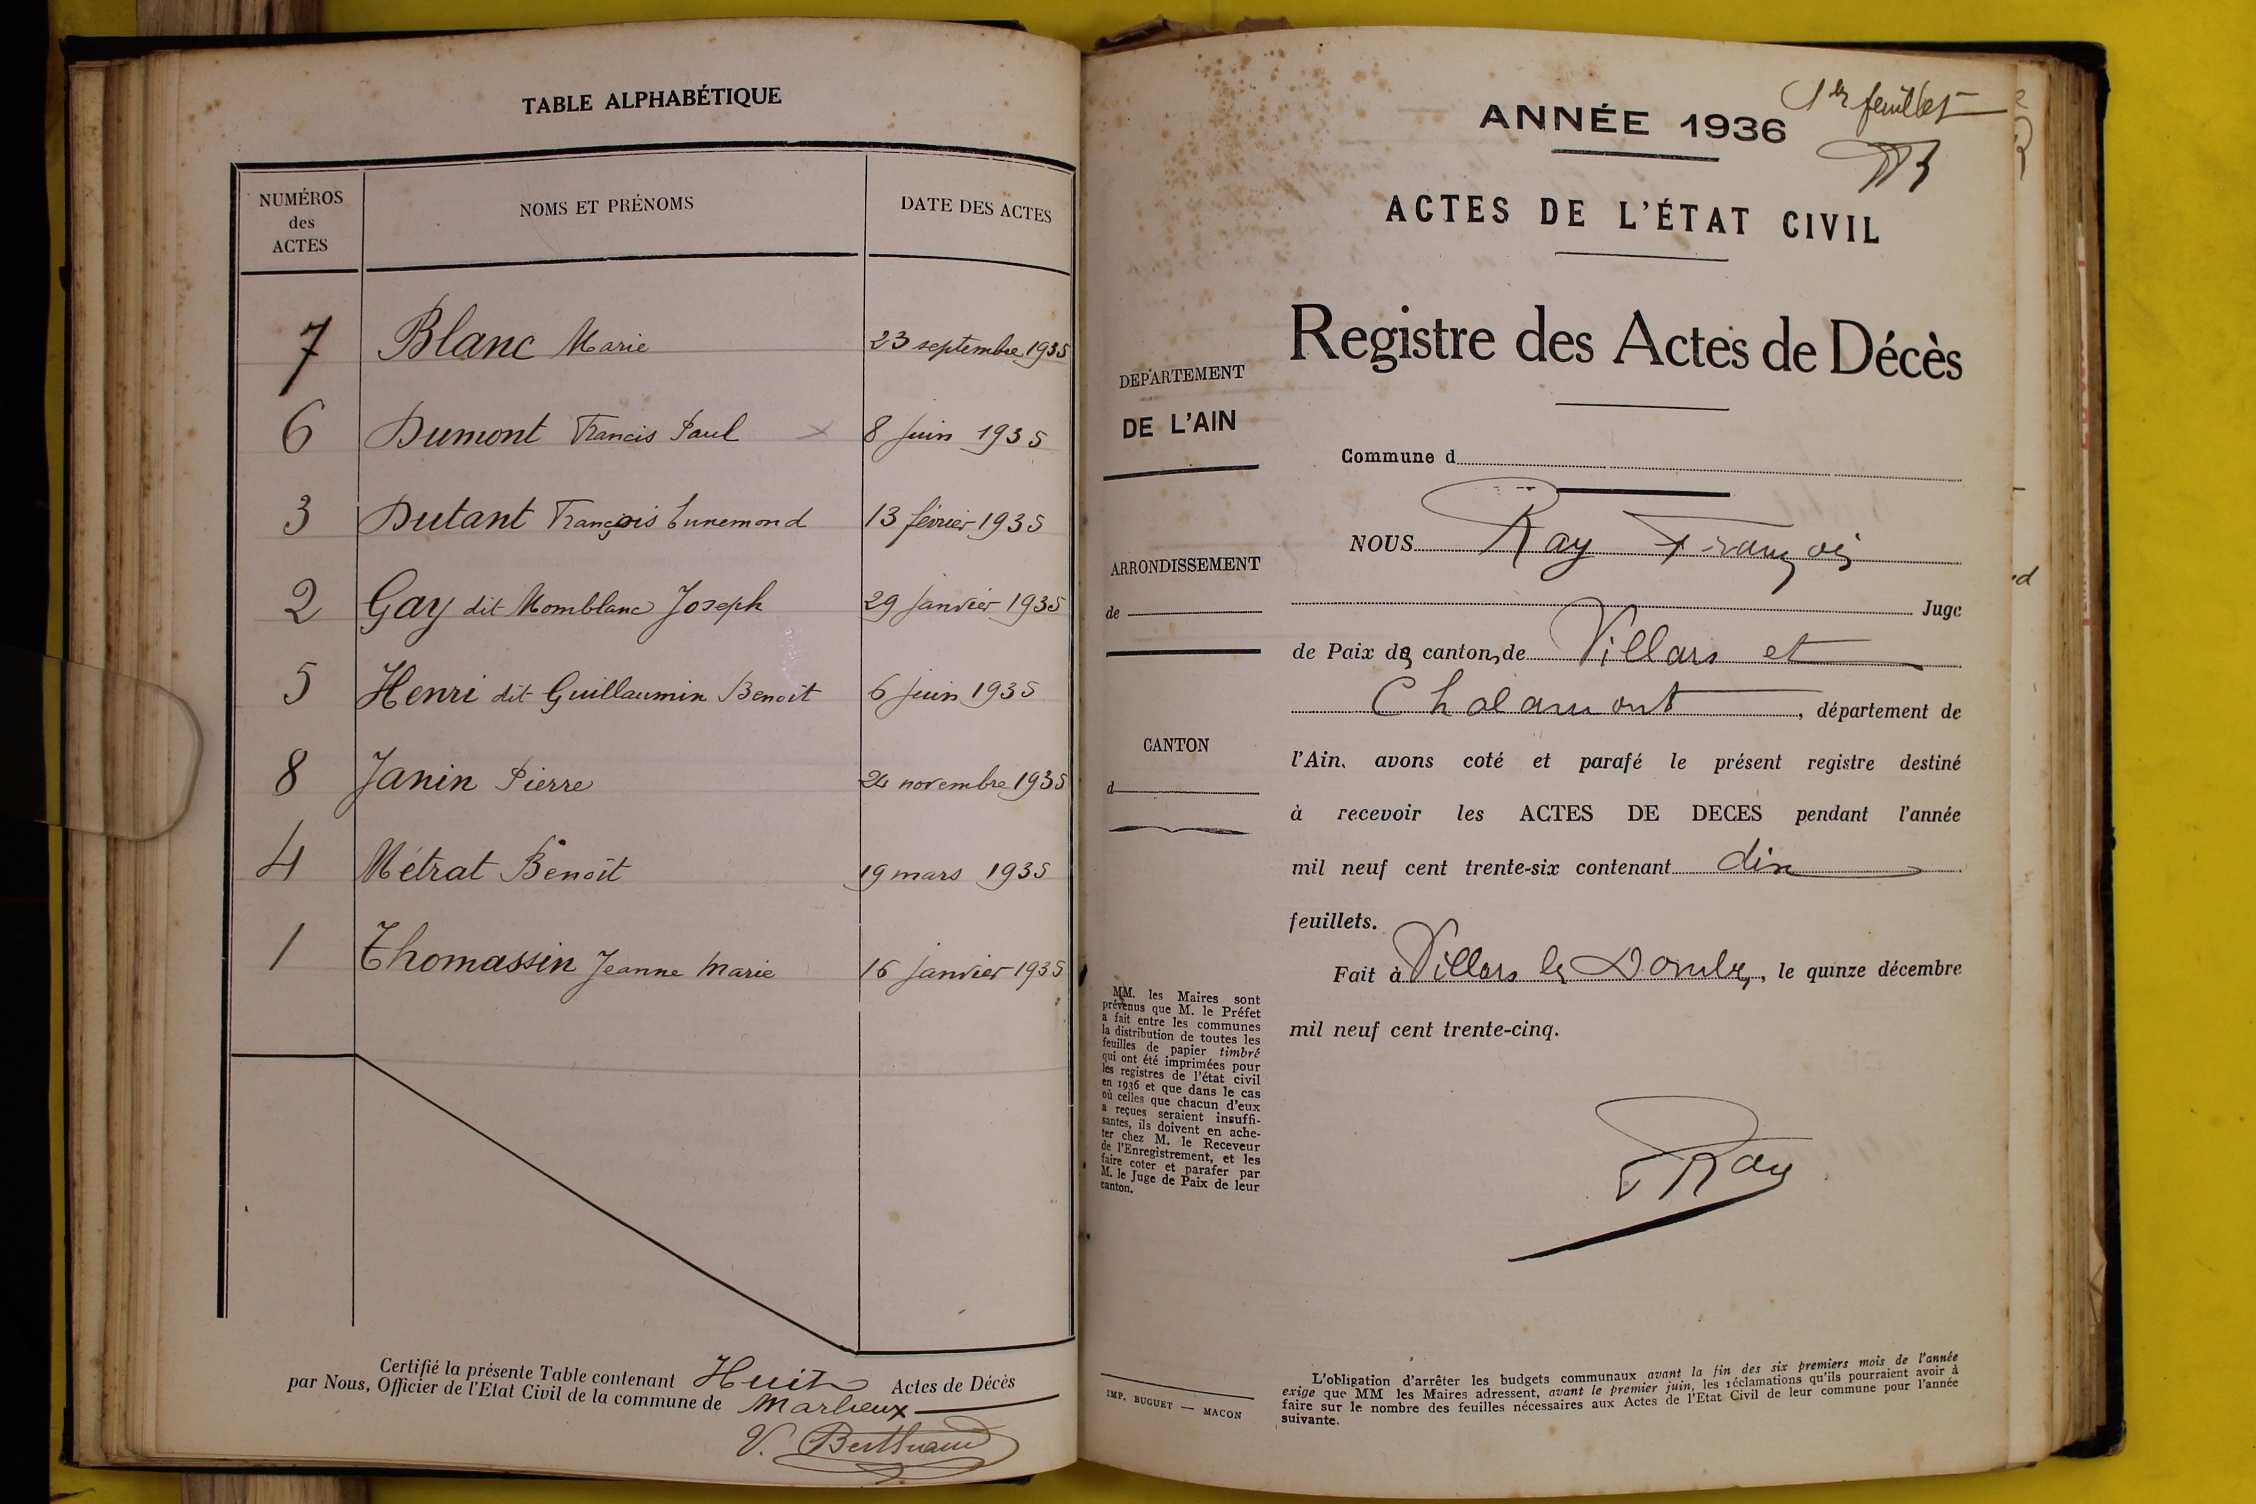 TABLE ALPHABÉTIQUE
NUMÉROS
des
ACTES
NOMS ET PRÉNOMS
DATE DES ACTES
7 Blanc Marie 23 septembre 1935
6 Dumont Francis Paul 8 juin 1935
3 Dutant François Eunemond 13 février 1935
2 Gay dit Momblanc Joseph 29 janvier 1935
5 Henri dit Guillaumin Benoît 6 juin 1935
8 Janin Pierre 24 novembre 1935
4 Métrat Benoît 19 mars 1935
1 Thomassin Jeanne Marie 16 janvier 1935
Certifié la présente Table contenant Huit Actes de Décès
par Nous, Officier de l'Etat Civil de la commune de Marlieux
1er feuillet
ANNÉE 1936
ACTES DE L'ÉTAT CIVIL
Registre des Actes de Décès
DEPARTEMENT
DE L'AIN
ARRONDISSEMENT
de
CANTON
d
MM. les Maires sont
prévenus que M. le Préfet
a fait entre les communes
la distribution de toutes les
feuilles de papier timbré
qui ont été imprimées pour
les registres de l'état civil
en 1936 et que dans le cas
où celles que chacun d'eux
a reçues seraient insuffi-
santes, ils doivent en ache-
ter chez M. le Receveur
de l'Enregistrement, et les
faire coter et parafer par
M. le Juge de Paix de leur
canton.
IMP. BUGUET — MACON
Commune d
NOUS Ray François
Juge
de Paix des cantons de Villars et
Chalamont, département de
l'Ain, avons coté et parafé le présent registre destiné
à recevoir les ACTES DE DECES pendant l'année
mil neuf cent trente-six contenant dix
feuillets.
Fait à Villars les Dombes, le quinze décembre
mil neuf cent trente-cinq.
Ray
L'obligation d'arrêter les budgets communaux avant la fin des six premiers mois de l'année
exige que MM les Maires adressent, avant le premier juin, les réclamations qu'ils pourraient avoir à
faire sur le nombre des feuilles nécessaires aux Actes de l'Etat Civil de leur commune pour l'année
suivante.